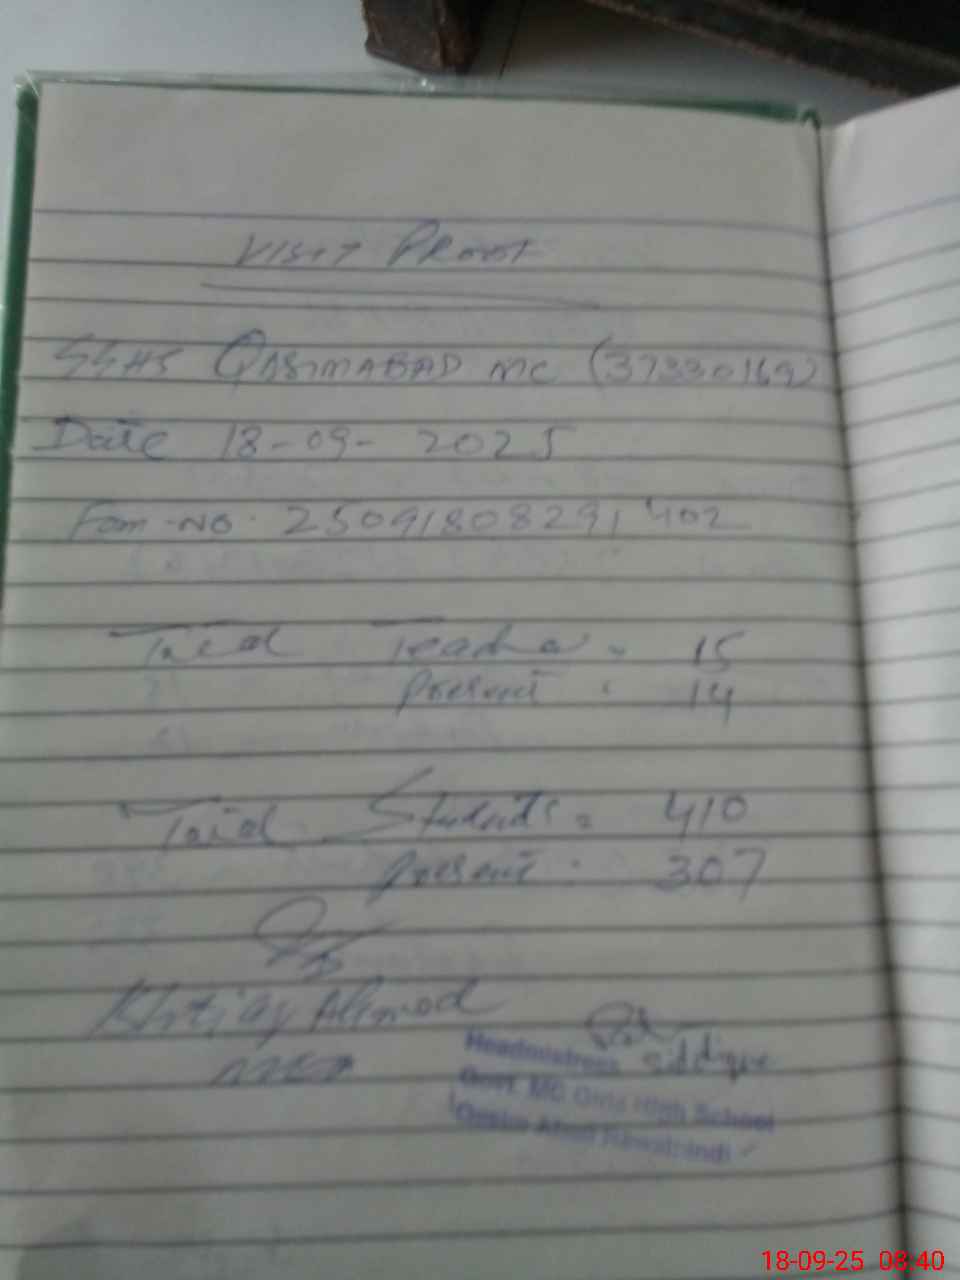 VISIT PROOF
GGHS QASIMABAD MC (37330169)
Date 18-09-2025
Fom-NO. 25091808291402
Total Teacher = 15
Present : 14
Total Students = 410
Present : 307
Ahmad
Siddique
Headmistress
Govt. MC Girls High School
Qasim Abad Rawalpindi
18-09-25 08:40